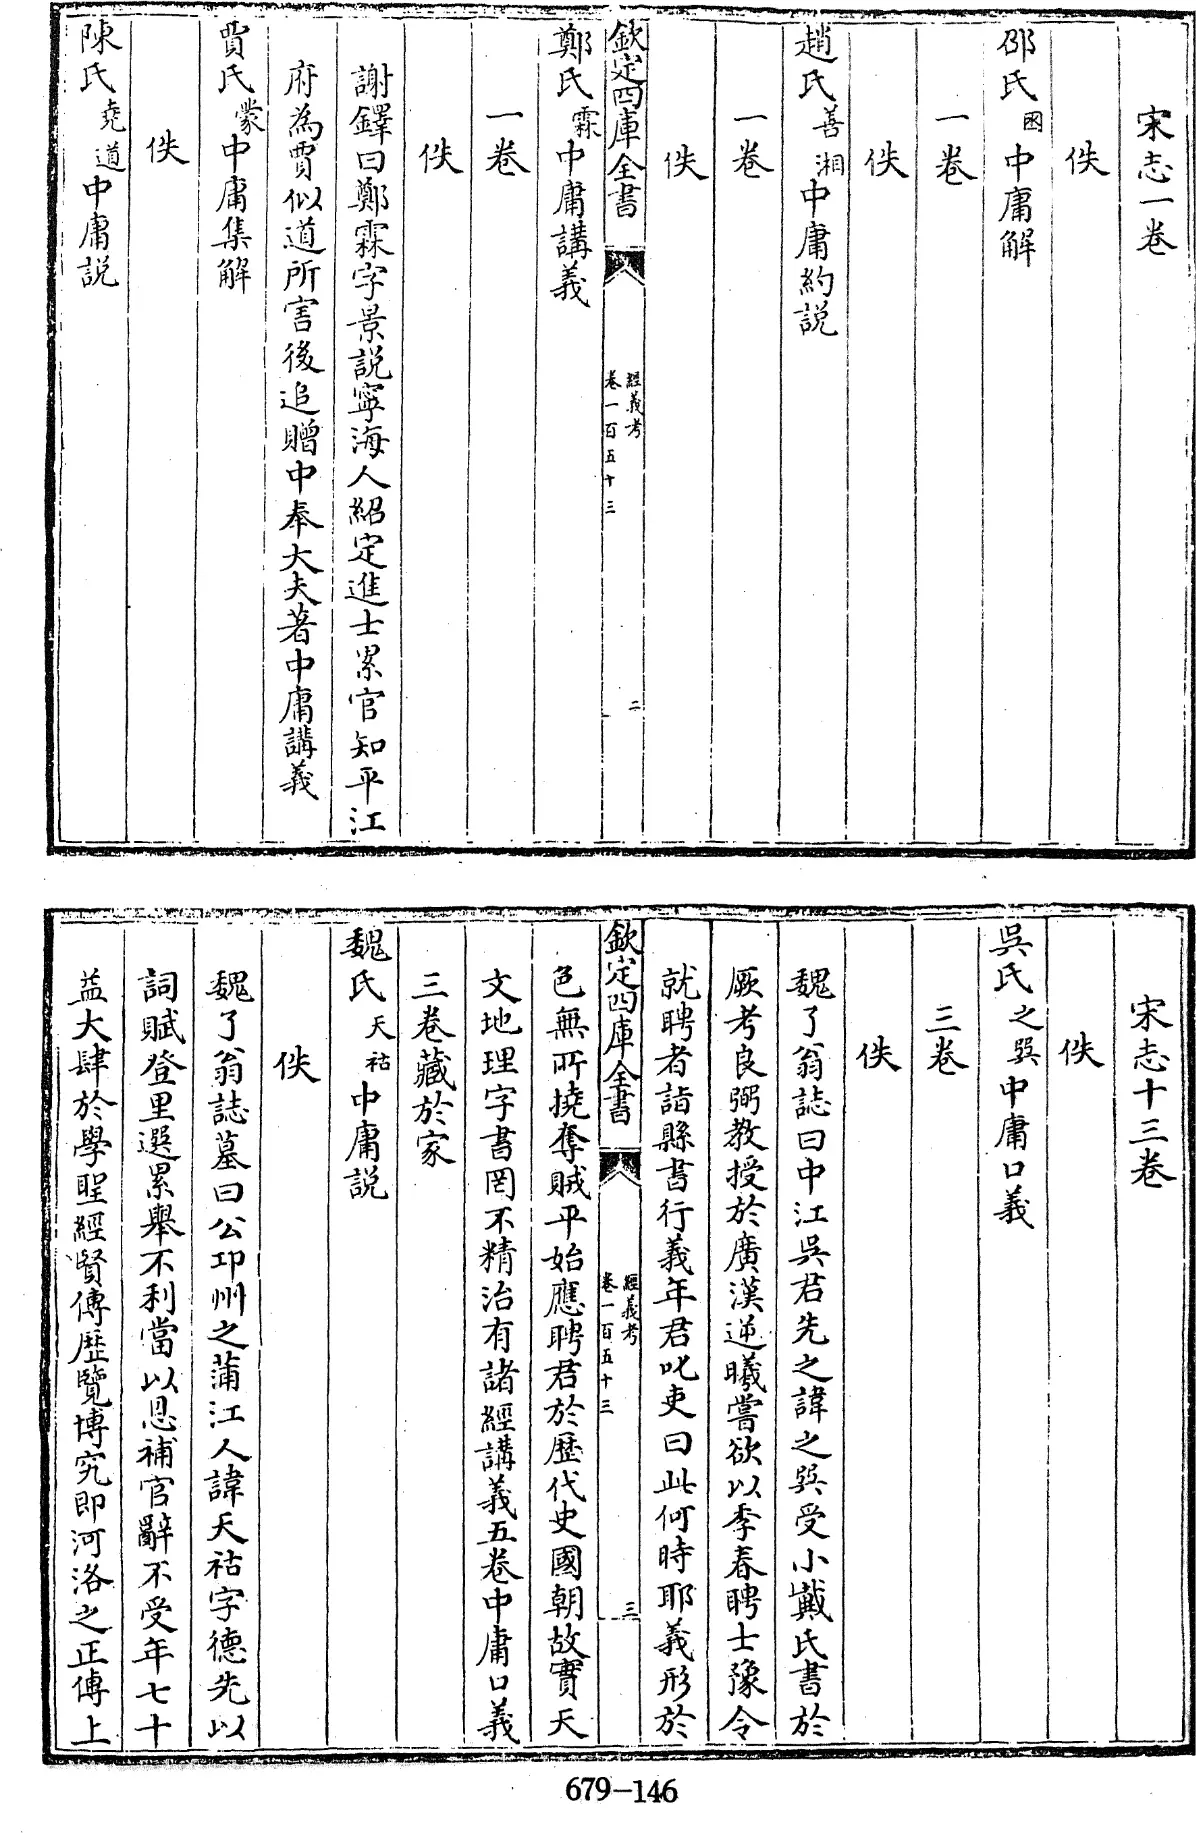 宋志一卷
佚
邵氏囦中庸解
一卷
佚
趙氏善湘中庸約説
一卷
佚
欽定四庫全書
經義考
卷一百五十三
二
鄭氏霖中庸講義
一卷
佚
謝鐸曰鄭霖字景説寧海人紹定進士累官知平江
府為賈似道所害後追贈中奉大夫著中庸講義
賈氏蒙中庸集解
佚
陳氏堯道中庸説
宋志十三卷
佚
吳氏之巽中庸口義
三卷
佚
魏了翁誌曰中江吳君先之諱之巽受小戴氏書於
厥考良弼教授於廣漢逆曦嘗欲以季春聘士豫令
就聘者詣縣書行義年君叱吏曰此何時耶義形於
色無所撓奪賊平始應聘君於歷代史國朝故實天
欽定四庫全書
經義考
卷一百五十三
三
文地理字書罔不精治有諸經講義五卷中庸口義
三卷藏於家
魏氏天祐中庸説
佚
魏了翁誌墓曰公邛州之蒲江人諱天祐字德先以
詞賦登里選累舉不利當以恩補官辭不受年七十
益大肆於學聖經賢傳歷覽博究即河洛之正傳上
679-146